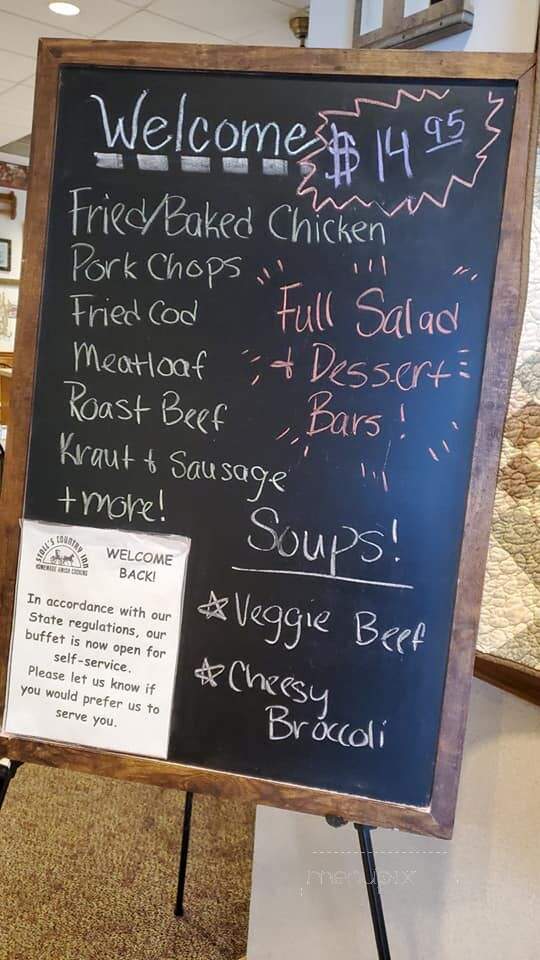 Welcome
$14 95
Fried/Baked Chicken
Pork Chops
Fried Cod
Meatloaf
Roast Beef
Kraut & Sausage
+ more!
Full Salad
+ Dessert
Bars!
Soups!
☆ Veggie Beef
☆ Cheesy
Broccoli
STOLL'S COUNTRY INN
HOMEMADE AMISH COOKING
WELCOME
BACK!
In accordance with our
State regulations, our
buffet is now open for
self-service.
Please let us know if
you would prefer us to
serve you.
menupix